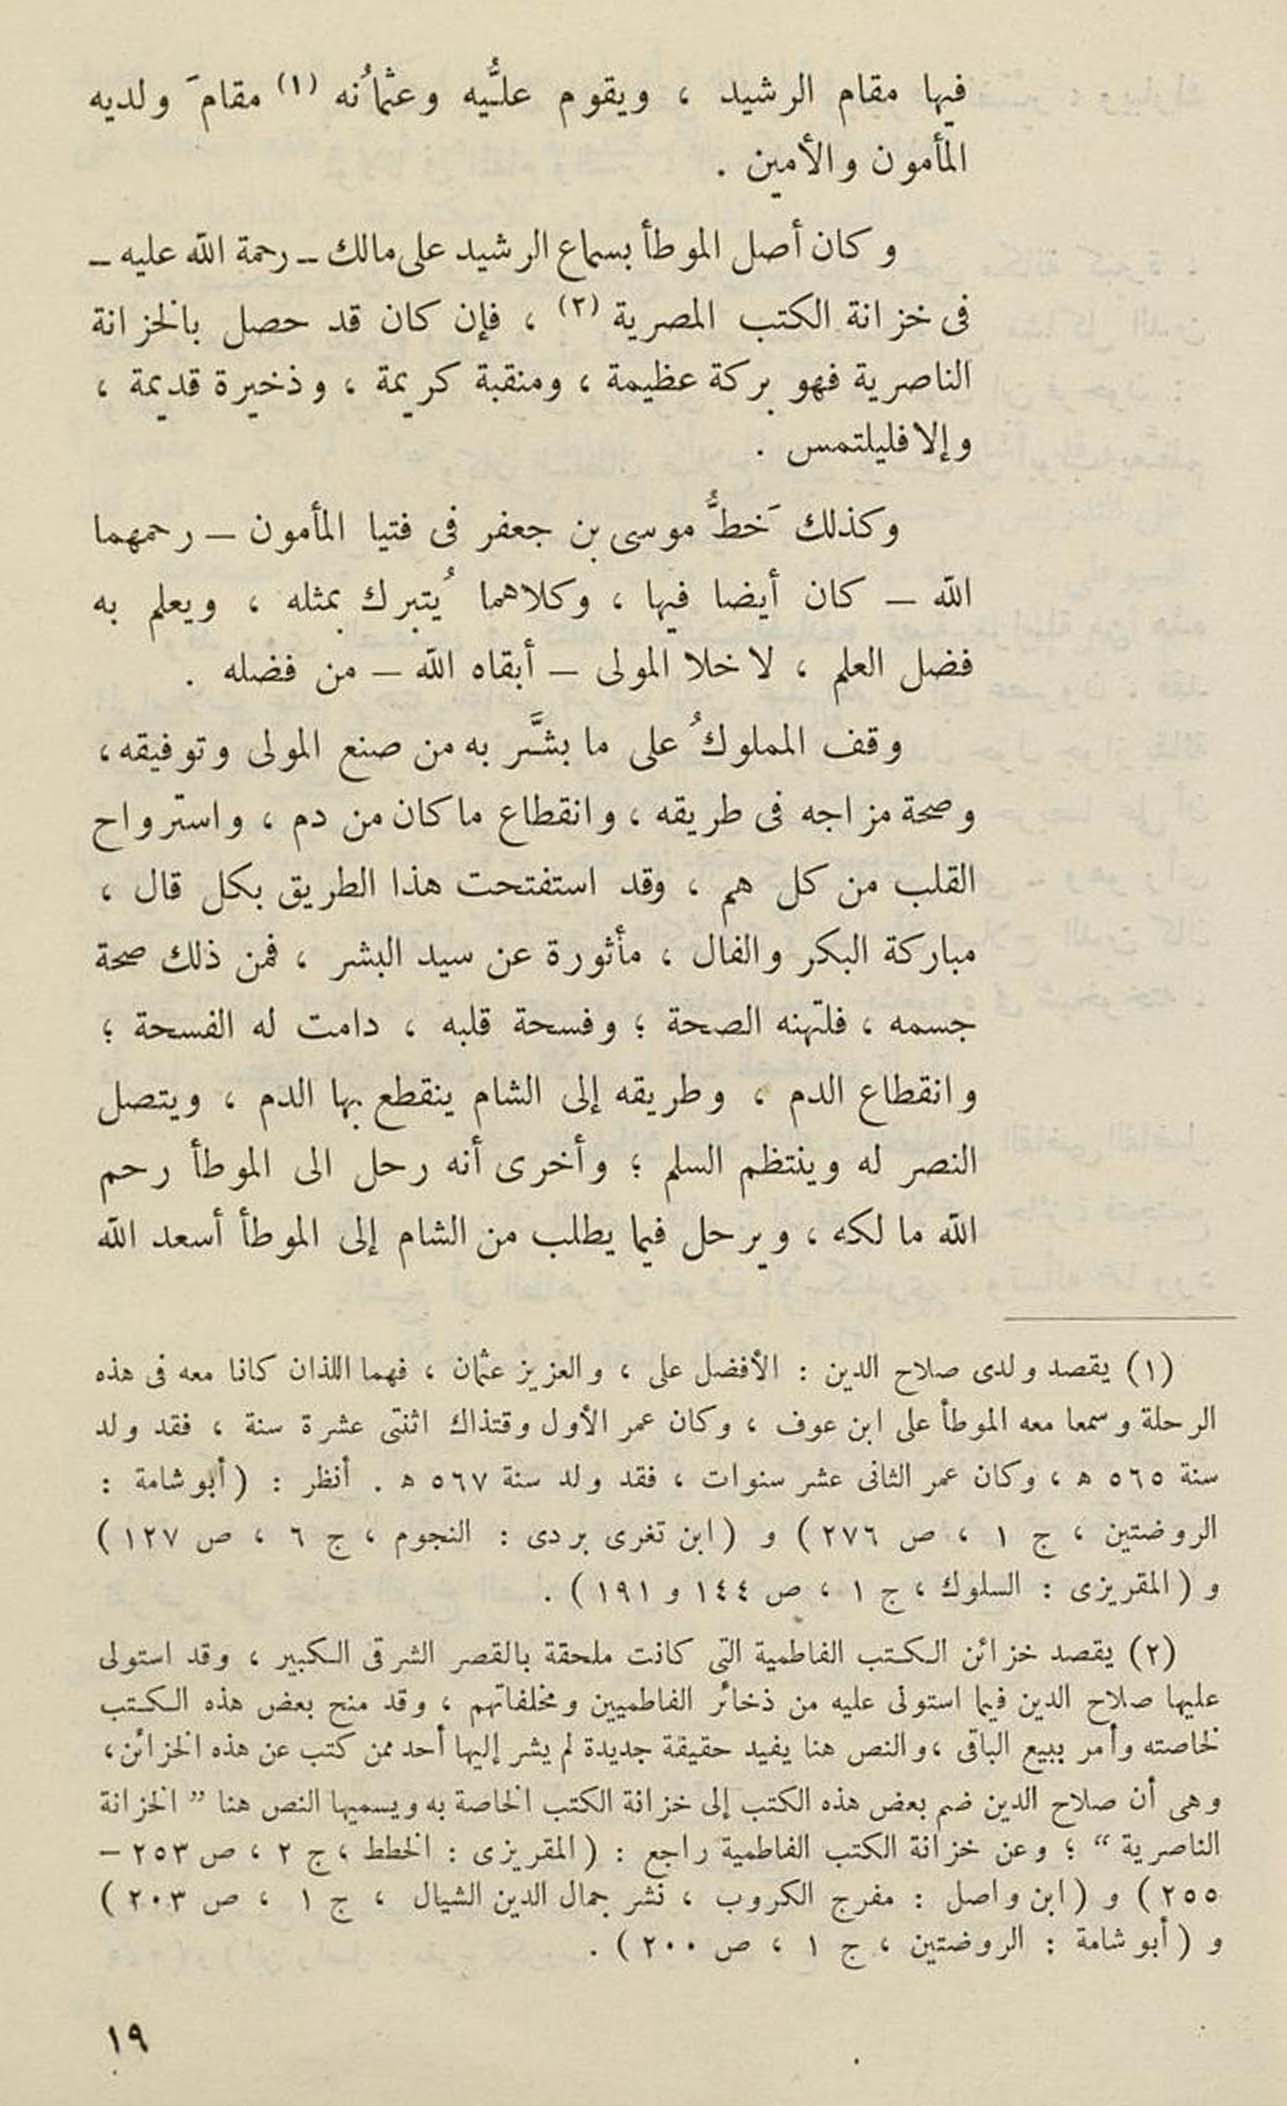 فيها مقام الرشيد ، ويقوم عليُّه وعثمانُه (١) مقامَ ولديه
المأمون والأمين .
وكان أصل الموطأ بسماع الرشيد على مالك – رحمة الله عليه –
فى خزانة الكتب المصرية (٢) ، فإن كان قد حصل بالخزانة
الناصرية فهو بركة عظيمة ، ومنقبة كريمة ، وذخيرة قديمة ،
وإلا فليلتمس .
وكذلك خَطُّ موسى بن جعفر فى فتيا المأمون – رحمهما
الله – كان أيضا فيها ، وكلاهما يُتبرك بمثله ، ويعلم به
فضل العلم ، لا خلا المولى – أبقاه الله – من فضله .
وقف المملوكُ على ما بشَّر به من صنع المولى وتوفيقه ،
وصحة مزاجه فى طريقه ، وانقطاع ماكان من دم ، واسترواح
القلب من كل هم ، وقد استفتحت هذا الطريق بكل قال ،
مباركة البكر والفال ، مأثورة عن سيد البشر ، فمن ذلك صحة
جسمه ، فلتهنه الصحة ؛ وفسحة قلبه ، دامت له الفسحة ؛
وانقطاع الدم ، وطريقه إلى الشام ينقطع بها الدم ، ويتصل
النصر له وينتظم السلم ؛ وأخرى أنه رحل الى الموطأ رحم
الله مالكه ، ويرحل فيما يطلب من الشام إلى الموطأ أسعد الله
(١) يقصد ولدى صلاح الدين : الأفضل على ، والعزيز عثمان ، فهما اللذان كانا معه فى هذه
الرحلة وسمعا معه الموطأ على ابن عوف ، وكان عمر الأول وقتذاك اثنتى عشرة سنة ، فقد ولد
سنة ٥٦٥ ه ، وكان عمر الثانى عشر سنوات ، فقد ولد سنة ٥٦٧ ه . أنظر : (أبو شامة :
الروضتين ، ج ١ ، ص ٢٧٦) و (ابن تغرى بردى : النجوم ، ج ٦ ، ص ١٢٧)
و (المقريزى : السلوك ، ج ١ ، ص ١٤٤ و ١٩١) .
(٢) يقصد خزائن الكتب الفاطمية التى كانت ملحقة بالقصر الشرقى الكبير ، وقد استولى
عليها صلاح الدين فيما استولى عليه من ذخائر الفاطميين ومخلفاتهم ، وقد منح بعض هذه الكتب
لخاصته وأمر ببيع الباقى ، والنص هنا يفيد حقيقة جديدة لم يشر إليها أحد ممن كتب عن هذه الخزائن ،
وهى أن صلاح الدين ضم بعض هذه الكتب إلى خزانة الكتب الخاصة به ويسميها النص هنا ” الخزانة
الناصرية “ ؛ وعن خزانة الكتب الفاطمية راجع : (المقريزى : الخطط ، ج ٢ ، ص ٢٥٣ –
٢٥٥) و (ابن واصل : مفرج الكروب ، نشر جمال الدين الشيال ، ج ١ ، ص ٢٠٣)
و (أبو شامة : الروضتين ، ج ١ ، ص ٢٠٠) .
١٩